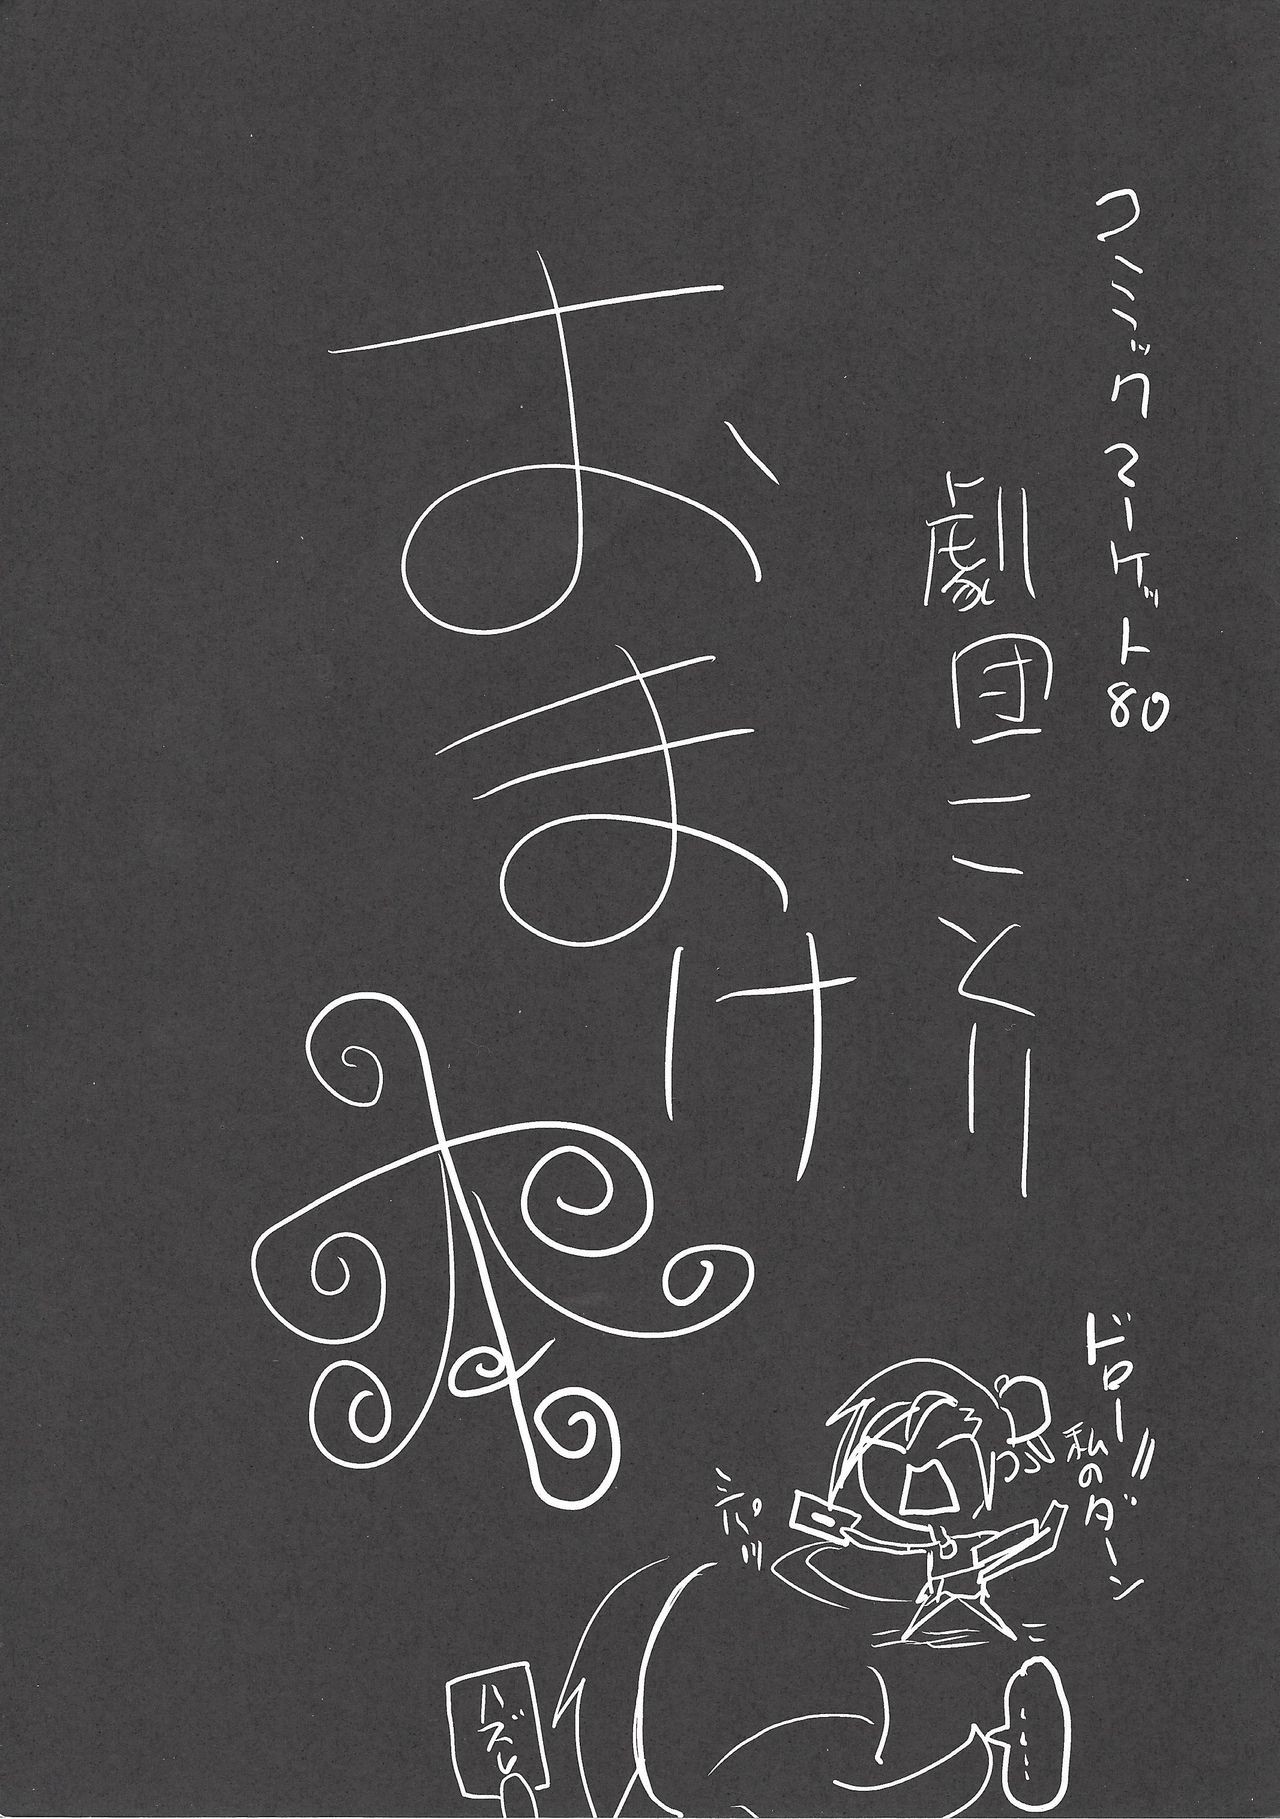 コミックマーケット80
劇団ことり
おまけ
本
ドロー!!
私のダーン
シパッ
……
ハズレ